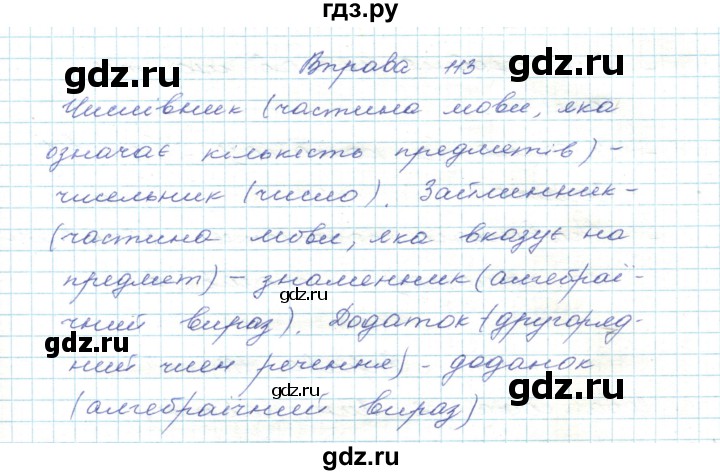 гдз.ру
Вправа 113
gdz.ru gdz.ru
Числівник (частина мови, яка
означає кількість предметів) -
gdz.ru gdz.ru
чисельник (число). Займенник -
(частина мови, яка вказує на
предмет) - знаменник (алгебраї-
gdz.ru
чний вираз). Додаток (другоряд-
gdz.ru
ний член речення) - доданок
gdz.ru
(алгебраїчний вираз)